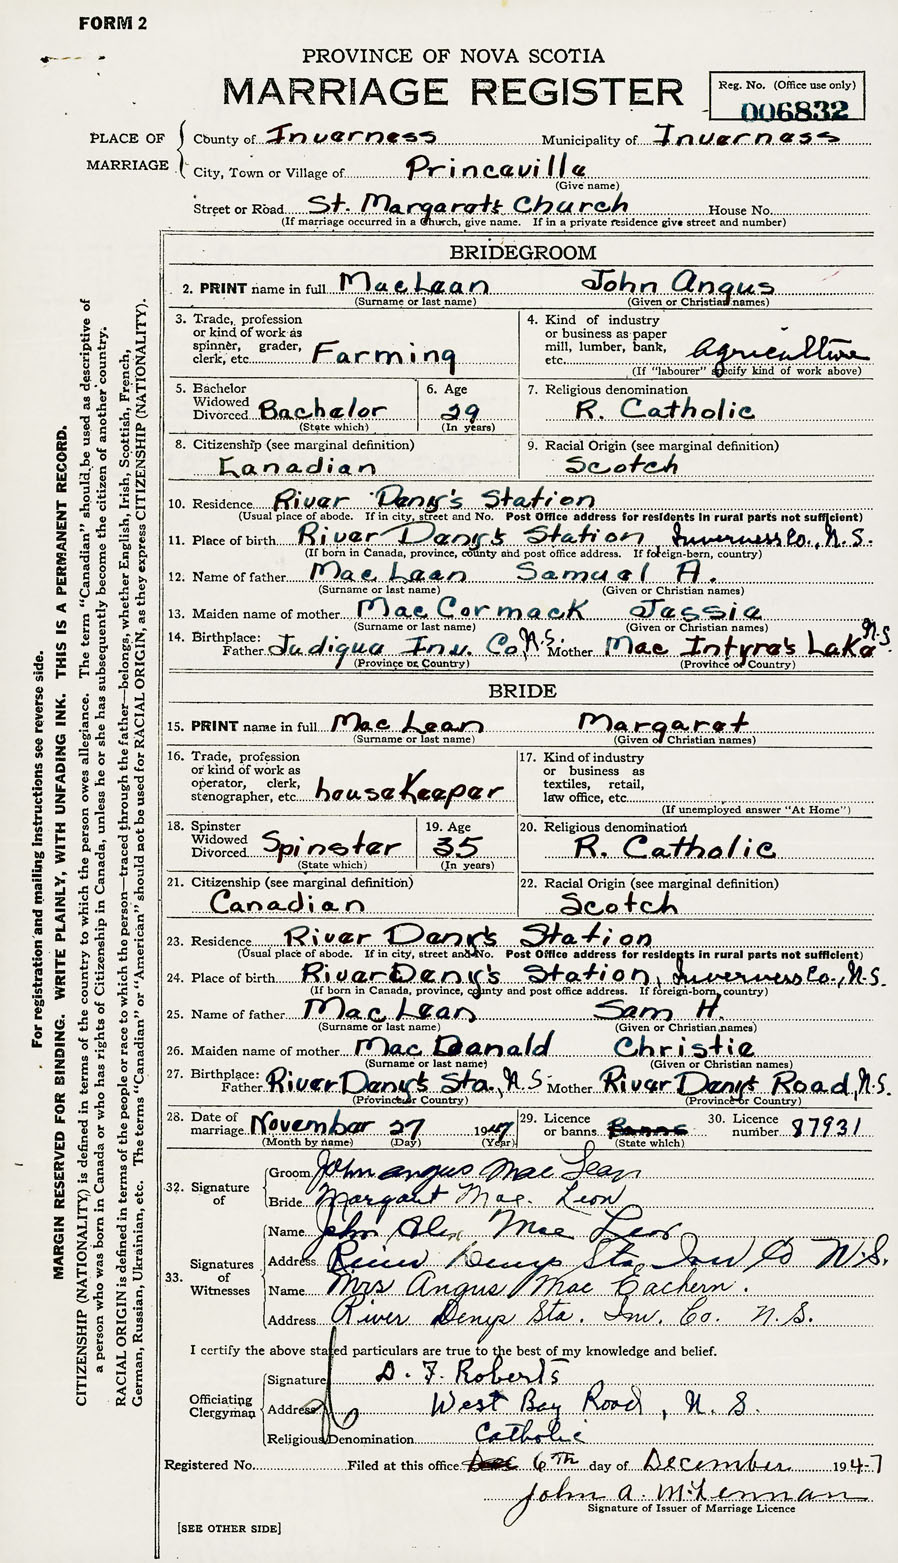 FORM 2
PROVINCE OF NOVA SCOTIA
MARRIAGE REGISTER
Reg. No. (Office use only)
006832
PLACE OF MARRIAGE
County of Inverness Municipality of Inverness
City, Town or Village of Princeville
(Give name)
Street or Road St. Margaret's Church House No.
(If marriage occurred in a Church, give name. If in a private residence give street and number)
BRIDEGROOM
2. PRINT name in full MacLean John Angus
(Surname or last name) (Given or Christian names)
3. Trade, profession
or kind of work as
spinner, grader,
clerk, etc. Farming
4. Kind of industry
or business as paper
mill, lumber, bank,
etc. Agriculture
(If "labourer" specify kind of work above)
5. Bachelor
Widowed
Divorced Bachelor
(State which)
6. Age
29
(In years)
7. Religious denomination
R. Catholic
8. Citizenship (see marginal definition)
Canadian
9. Racial Origin (see marginal definition)
Scotch
10. Residence River Deny's Station
(Usual place of abode. If in city, street and No. Post Office address for residents in rural parts not sufficient)
11. Place of birth River Deny's Station, Inverness Co., N.S.
(If born in Canada, province, county and post office address. If foreign-born, country)
12. Name of father MacLean Samuel A.
(Surname or last name) (Given or Christian names)
13. Maiden name of mother MacCormack Jessie
(Surname or last name) (Given or Christian names)
14. Birthplace:
Father Judique Inv. Co, N.S. Mother MacIntyre's Lake N.S.
(Province or Country) (Province or Country)
BRIDE
15. PRINT name in full MacLean Margaret
(Surname or last name) (Given or Christian names)
16. Trade, profession
or kind of work as
operator, clerk,
stenographer, etc. houseKeeper
17. Kind of industry
or business as
textiles, retail,
law office, etc.
(If unemployed answer "At Home")
18. Spinster
Widowed
Divorced Spinster
(State which)
19. Age
35
(In years)
20. Religious denomination
R. Catholic
21. Citizenship (see marginal definition)
Canadian
22. Racial Origin (see marginal definition)
Scotch
23. Residence River Deny's Station
(Usual place of abode. If in city, street and No. Post Office address for residents in rural parts not sufficient)
24. Place of birth River Deny's Station, Inverness Co., N.S.
(If born in Canada, province, county and post office address. If foreign-born, country)
25. Name of father MacLean Sam H.
(Surname or last name) (Given or Christian names)
26. Maiden name of mother MacDonald Christie
(Surname or last name) (Given or Christian names)
27. Birthplace:
Father River Deny's Sta., N.S. Mother River Deny's Road, N.S.
(Province or Country) (Province or Country)
28. Date of
marriage November 27 1947
(Month by name) (Day) (Year)
29. Licence
or banns Banns
(State which)
30. Licence
number 87931
32. Signature
of
Groom John Angus MacLean
Bride Margaret Mac. Lean
33. Signatures
of
Witnesses
Name John Alex MacLean
Address River Denys Sta, Inv Co N.S.
Name Mrs Angus MacEachern.
Address River Denys Sta. Inv. Co. N.S.
I certify the above stated particulars are true to the best of my knowledge and belief.
Officiating
Clergyman
Signature D. F. Roberts
Address West Bay Road, N.S.
Religious Denomination Catholic
Registered No. Filed at this office 6th day of December 1947
John A. McLennan
Signature of Issuer of Marriage Licence
[SEE OTHER SIDE]
For registration and mailing instructions see reverse side.
MARGIN RESERVED FOR BINDING. WRITE PLAINLY, WITH UNFADING INK. THIS IS A PERMANENT RECORD.
CITIZENSHIP (NATIONALITY) is defined in terms of the country to which the person owes allegiance. The term "Canadian" should be used as descriptive of
a person who was born in Canada or who has rights of Citizenship in Canada, unless he or she has subsequently become the citizen of another country.
RACIAL ORIGIN is defined in terms of the people or race to which the person—traced through the father—belongs, whether English, Irish, Scottish, French,
German, Russian, Ukrainian, etc. The terms "Canadian" or "American" should not be used for RACIAL ORIGIN, as they express CITIZENSHIP (NATIONALITY).